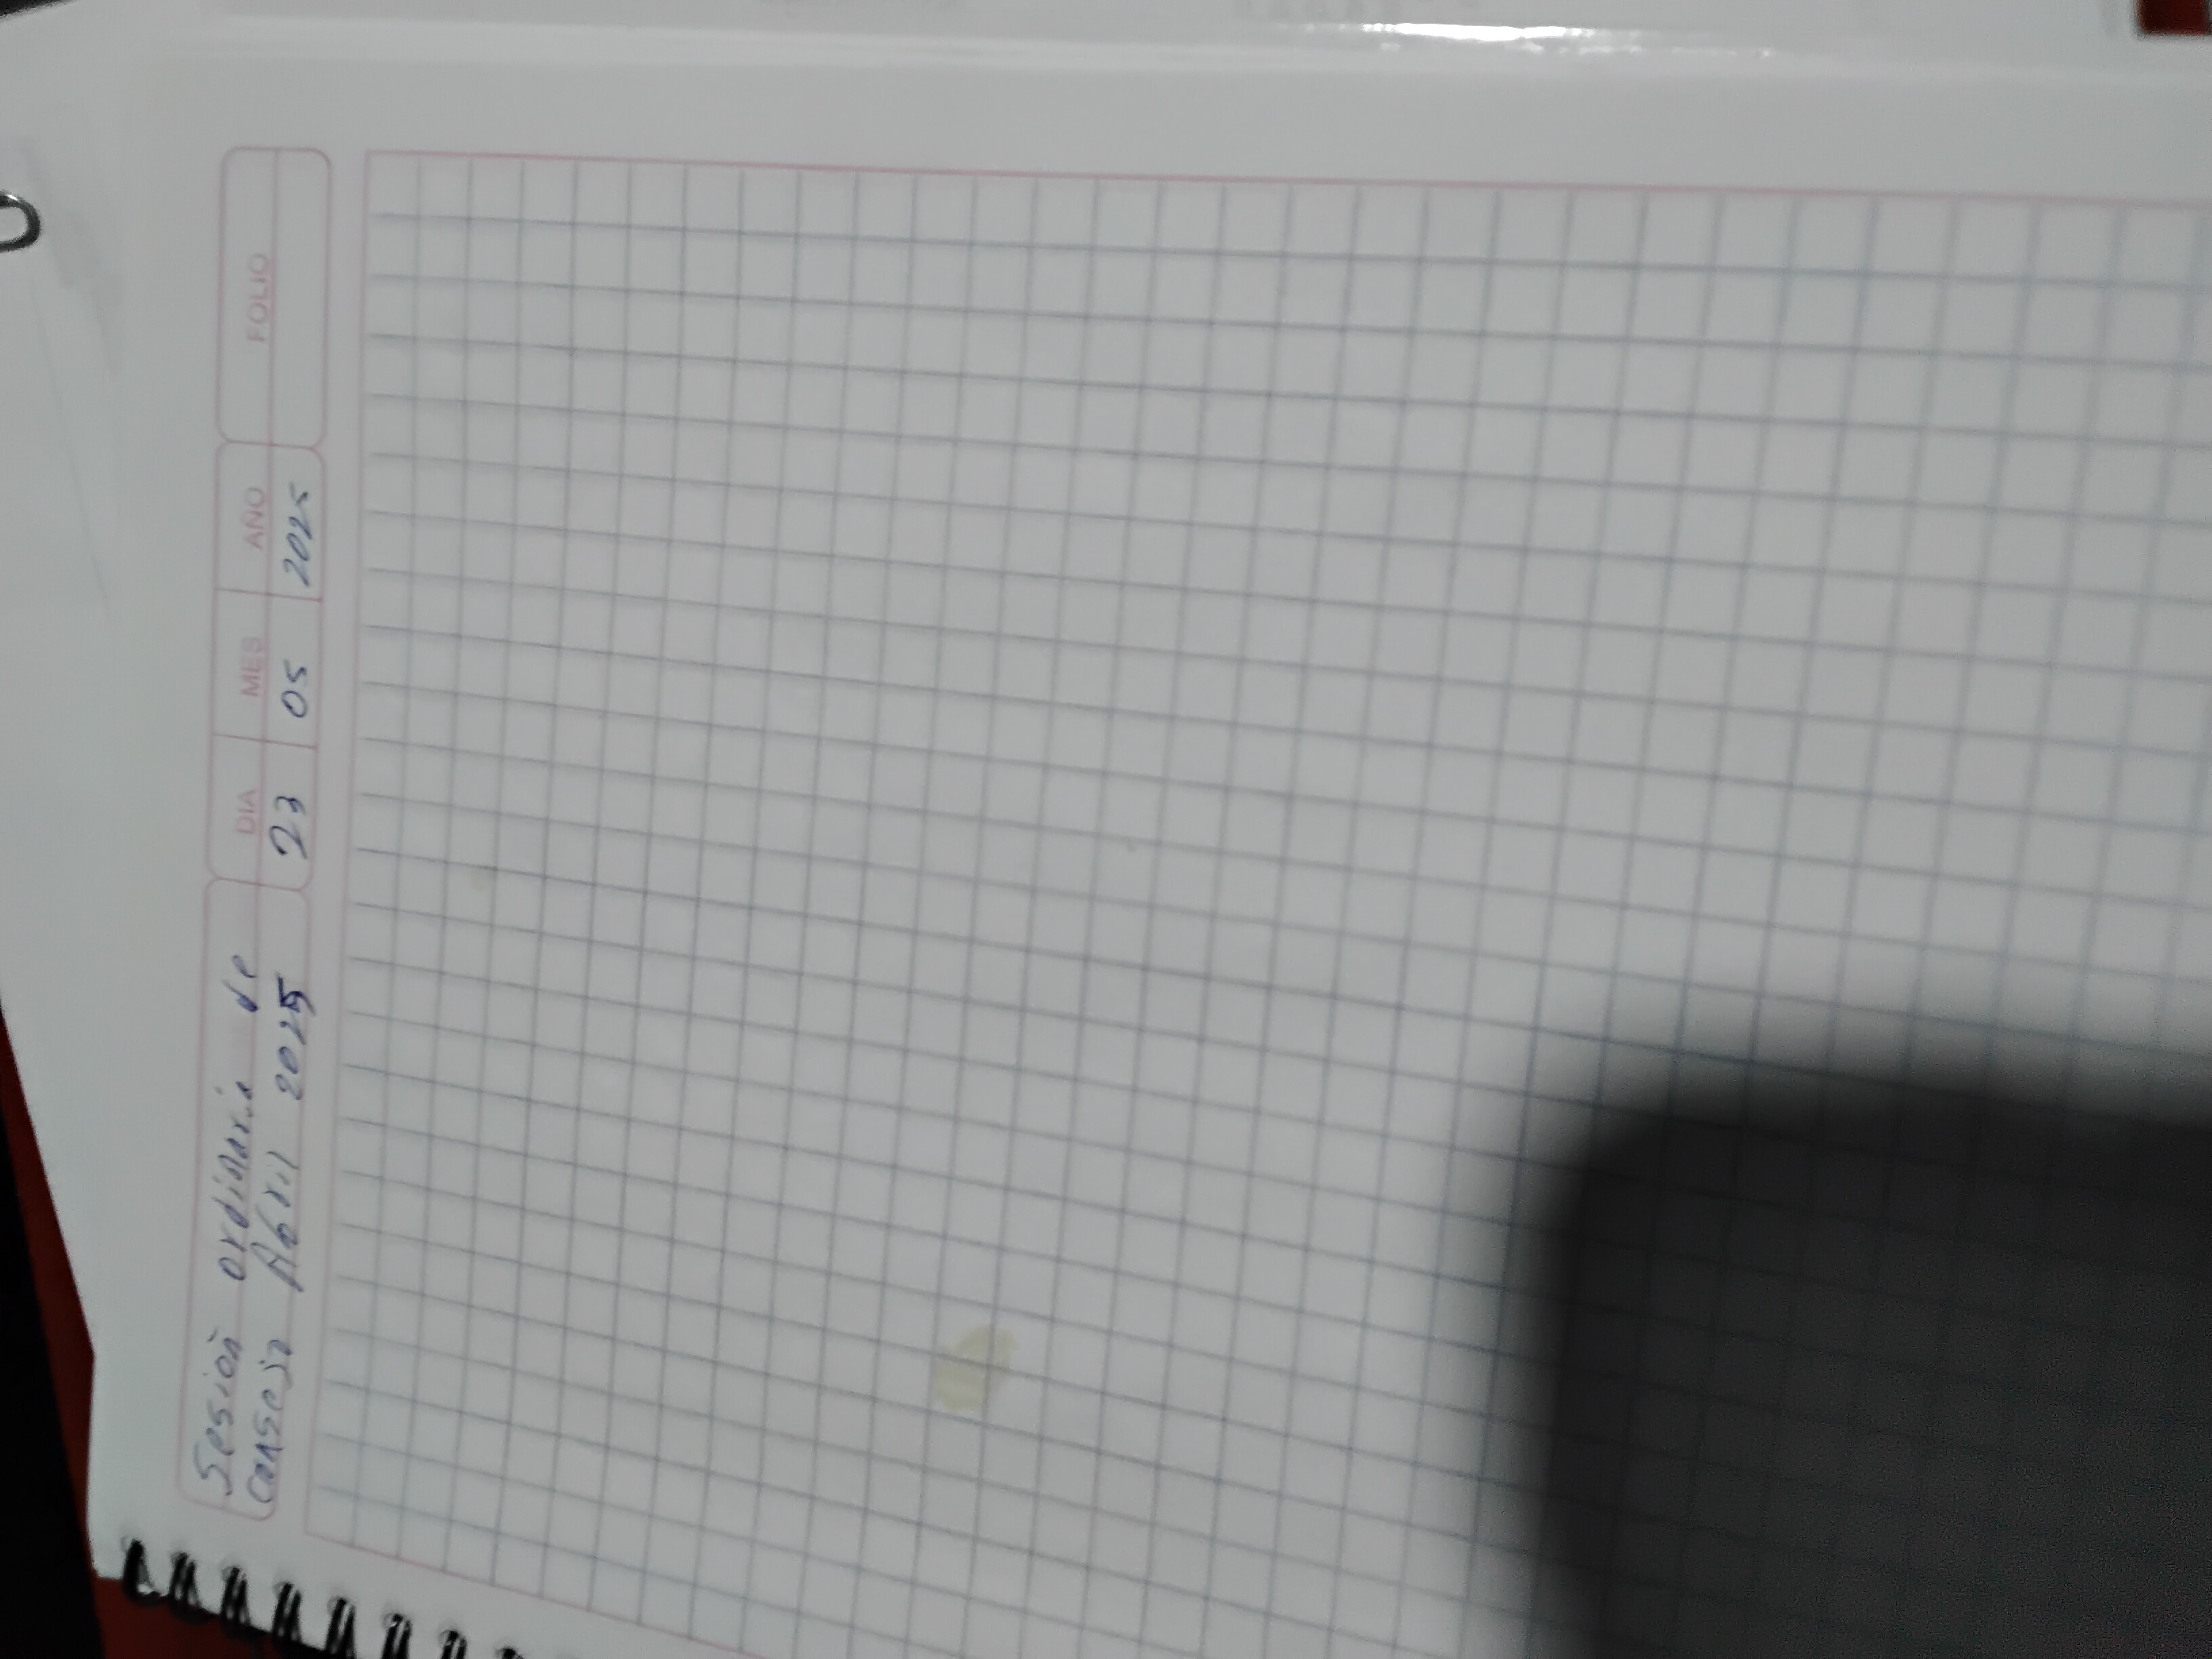 Sesión ordinaria de
consejo Abril 2025
DIA MES AÑO FOLIO
23 05 2025